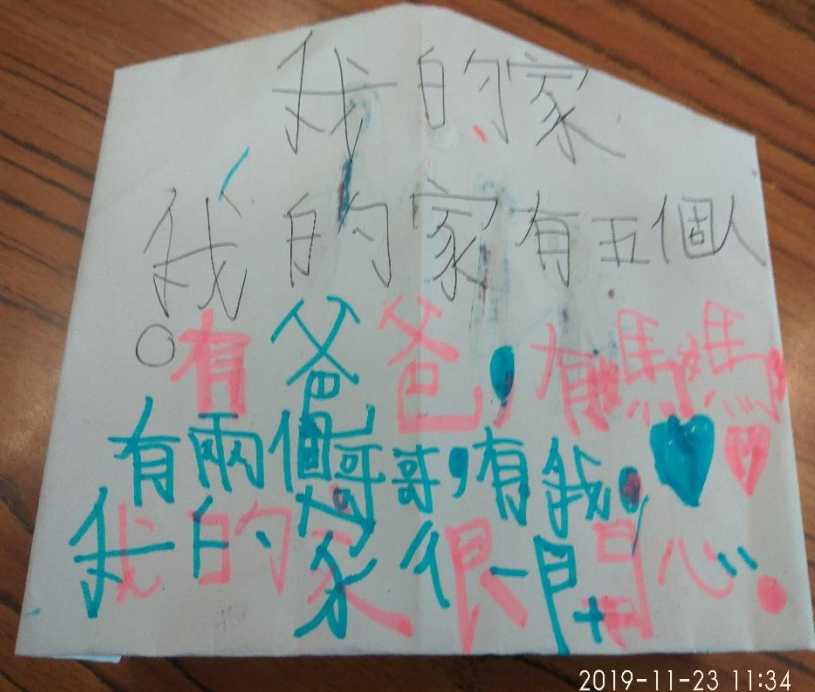 我的家
我的家有五個人
。有爸爸,有媽媽,
有兩個哥哥,有我。
我的家很開心。
2019-11-23 11:34